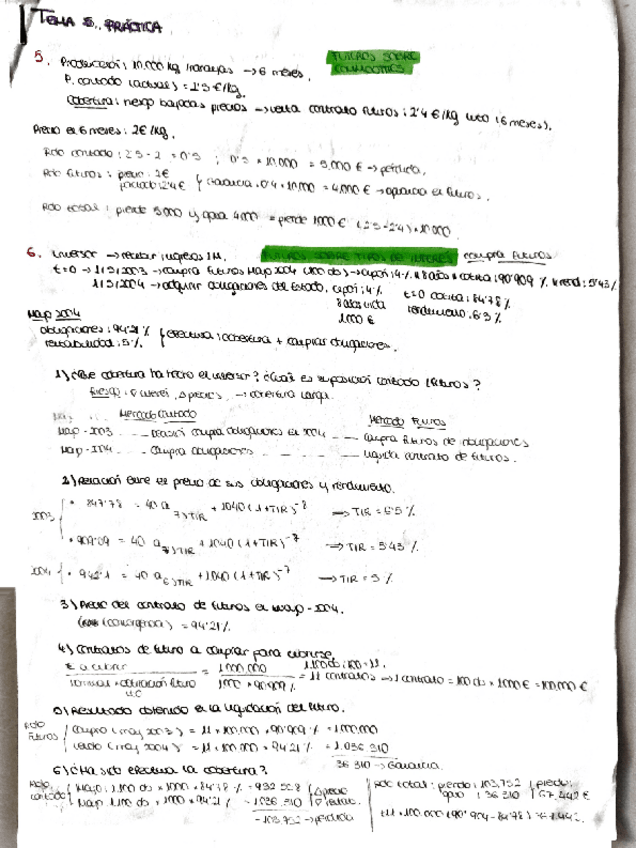 TEMA 5. PRÁCTICA
5. Producción: 10.000 kg naranjas → 6 meses. FUTUROS SOBRE COMMODITIES
P. contado (actual) = 2'5 €/kg.
Cobertura: riesgo bajadas precios → venta contrato futuros: 2'4 €/kg (6 meses).
Precio en 6 meses: 2€/kg.
Rdo contado: 2'5 - 2 = 0'5 ; 0'5 × 10.000 = 5.000 € → pérdida.
Rdo futuros: precio: 2€
pactado: 2'4€ } Ganancia: 0'4 × 10.000 = 4.000 € → ganancia en futuros.
Rdo total: pierde 5.000 y gana 4000 = pierde 1000 € (2'5-2'4) × 10.000
6. Inversor → recibir ingresos 1M. FUTUROS SOBRE TIPOS DE INTERÉS compra futuros
t=0 → 2003 → compra futuros Mayo 2004 → cupón: 4% 8 años cotiza: 90'909 % rend: 5'43%
2004 → adquirir obligaciones del Estado. cupón: 4% t=0 cotiza: 84'78 %
8 años vida rendimiento: 6'5 %
1.000 €
Mayo 2004
obligaciones: 94'21 %
rentabilidad: 5 % } efectiva: cobertura + comprar obligaciones.
1) ¿Qué cobertura ha hecho el inversor? ¿Cuál es su posición contado/futuros?
Riesgo: ↓ interés, ↑ precios → cobertura larga.
Mercado contado Mercado Futuros
Mayo - 2003 --- Decisión compra obligaciones en 2004 --- compra futuros de obligaciones
Mayo - 2004 --- compra obligaciones --- liquida contrato de futuros.
2) Relación entre el precio de sus obligaciones y rendimiento.
2003 { • 847'78 = 40 a 7⌉TIR + 1040 (1+TIR)⁻⁸ → TIR = 6'5 %
• 909'09 = 40 a 7⌉TIR + 1040 (1+TIR)⁻⁷ → TIR = 5'43 %
2004 { • 942'1 = 40 a 6⌉TIR + 1040 (1+TIR)⁻⁷ → TIR = 5 %
3) Precio del contrato de futuros en mayo - 2004.
(convergencia) = 94'21 %
4) Contratos de futuro a comprar para cubrirse.
€ a cubrir / nominal × obligación futuro = 1.000.000 / 1000 × 90'909 % = 11 contratos → 1 contrato = 100 ob × 1000 € = 100.000 €
5) Resultado obtenido en la liquidación del futuro.
Rdo Futuros { compro (may 2003) = 11 × 100.000 × 90'909 % = 1.000.000
vendo (may 2004) = 11 × 100.000 × 94'21 % = 1.036.310
36.310 → Ganancia.
6) ¿Ha sido efectiva la cobertura?
Rdo contado { Mayo: 1.100 ob × 1000 × 84'78 % = 932.558
Mayo: 1.100 ob × 1000 × 94'21 % = 1.036.310
-103.752 → pérdida
Rdo total: pierdo: 103.752
gano: 36.310 } 67.442 €